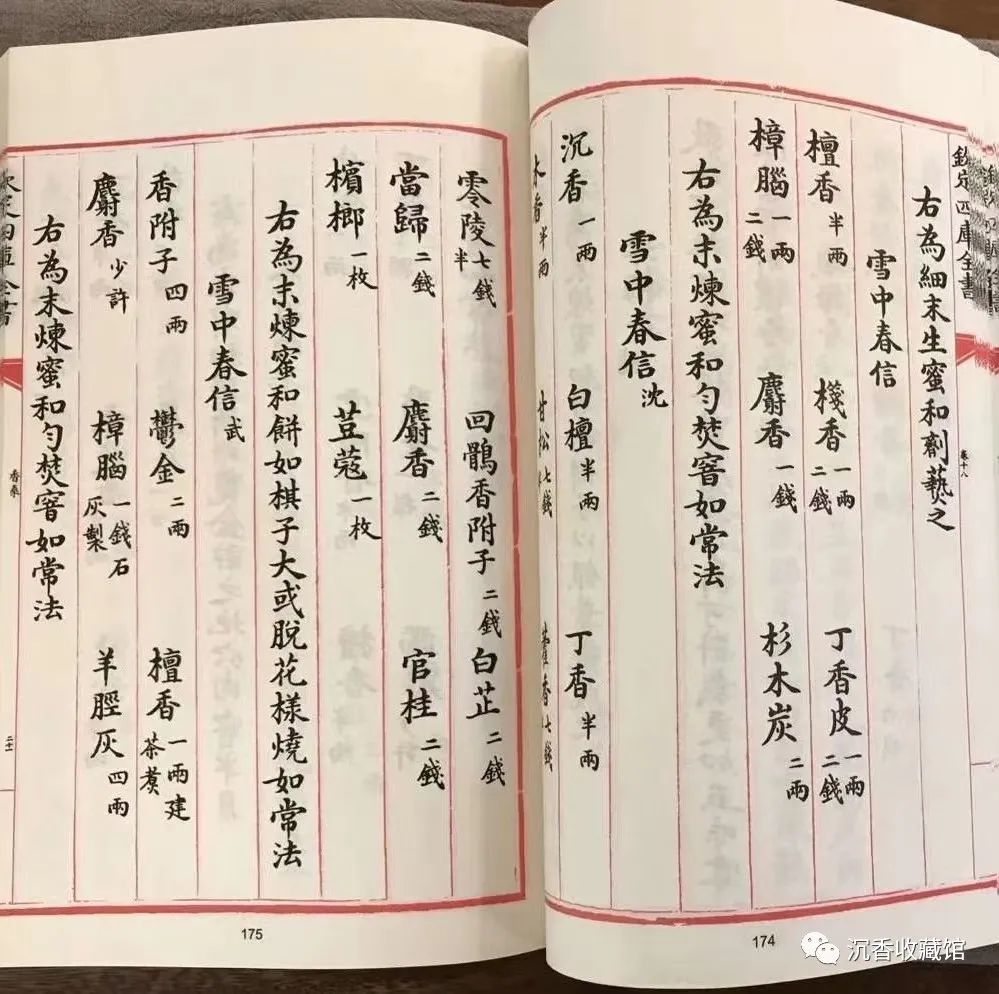 欽定四庫全書 卷十八
右為細末生蜜和劑爇之
雪中春信
檀香半兩 棧香一兩二錢 丁香皮一兩二錢
樟腦一兩二錢 麝香一錢 杉木炭二兩
右為末煉蜜和勻焚窨如常法
雪中春信沈
沉香一兩 白檀半兩 丁香半兩
木香半兩 甘松七錢 藿香七錢
174
零陵七錢半 回鶻香附子二錢 白芷二錢
當歸二錢 麝香二錢 官桂二錢
檳榔一枚 荳蔻一枚
右為末煉蜜和餅如棋子大或脫花樣燒如常法
雪中春信武
香附子四兩 鬱金二兩 檀香一兩建茶煑
麝香少許 樟腦一錢石灰製 羊脛灰四兩
右為末煉蜜和勻焚窨如常法
香乘
175
沉香收藏馆